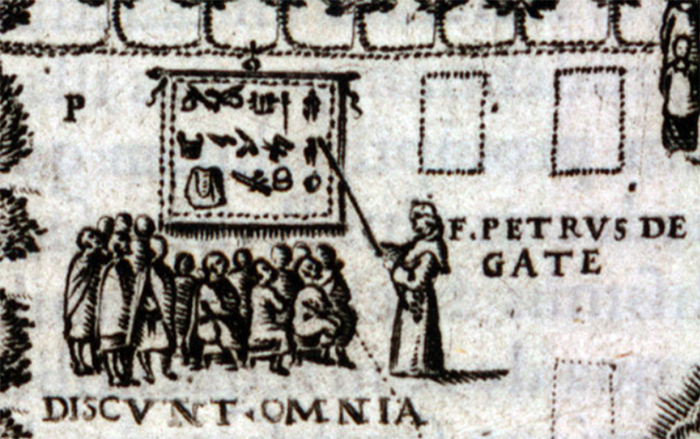 P
F. PETRVS DE
GATE
DISCVNT OMNIA